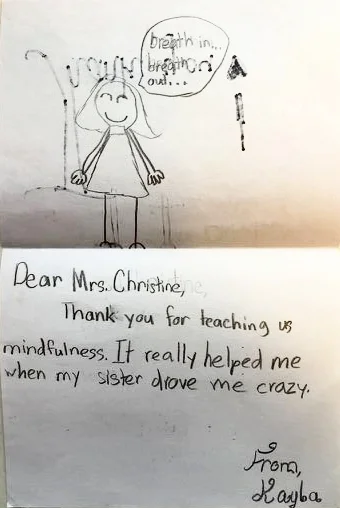 breath in...
breath
out...
Dear Mrs. Christine,
Thank you for teaching us
mindfulness. It really helped me
when my sister drove me crazy.
From,
Kayba